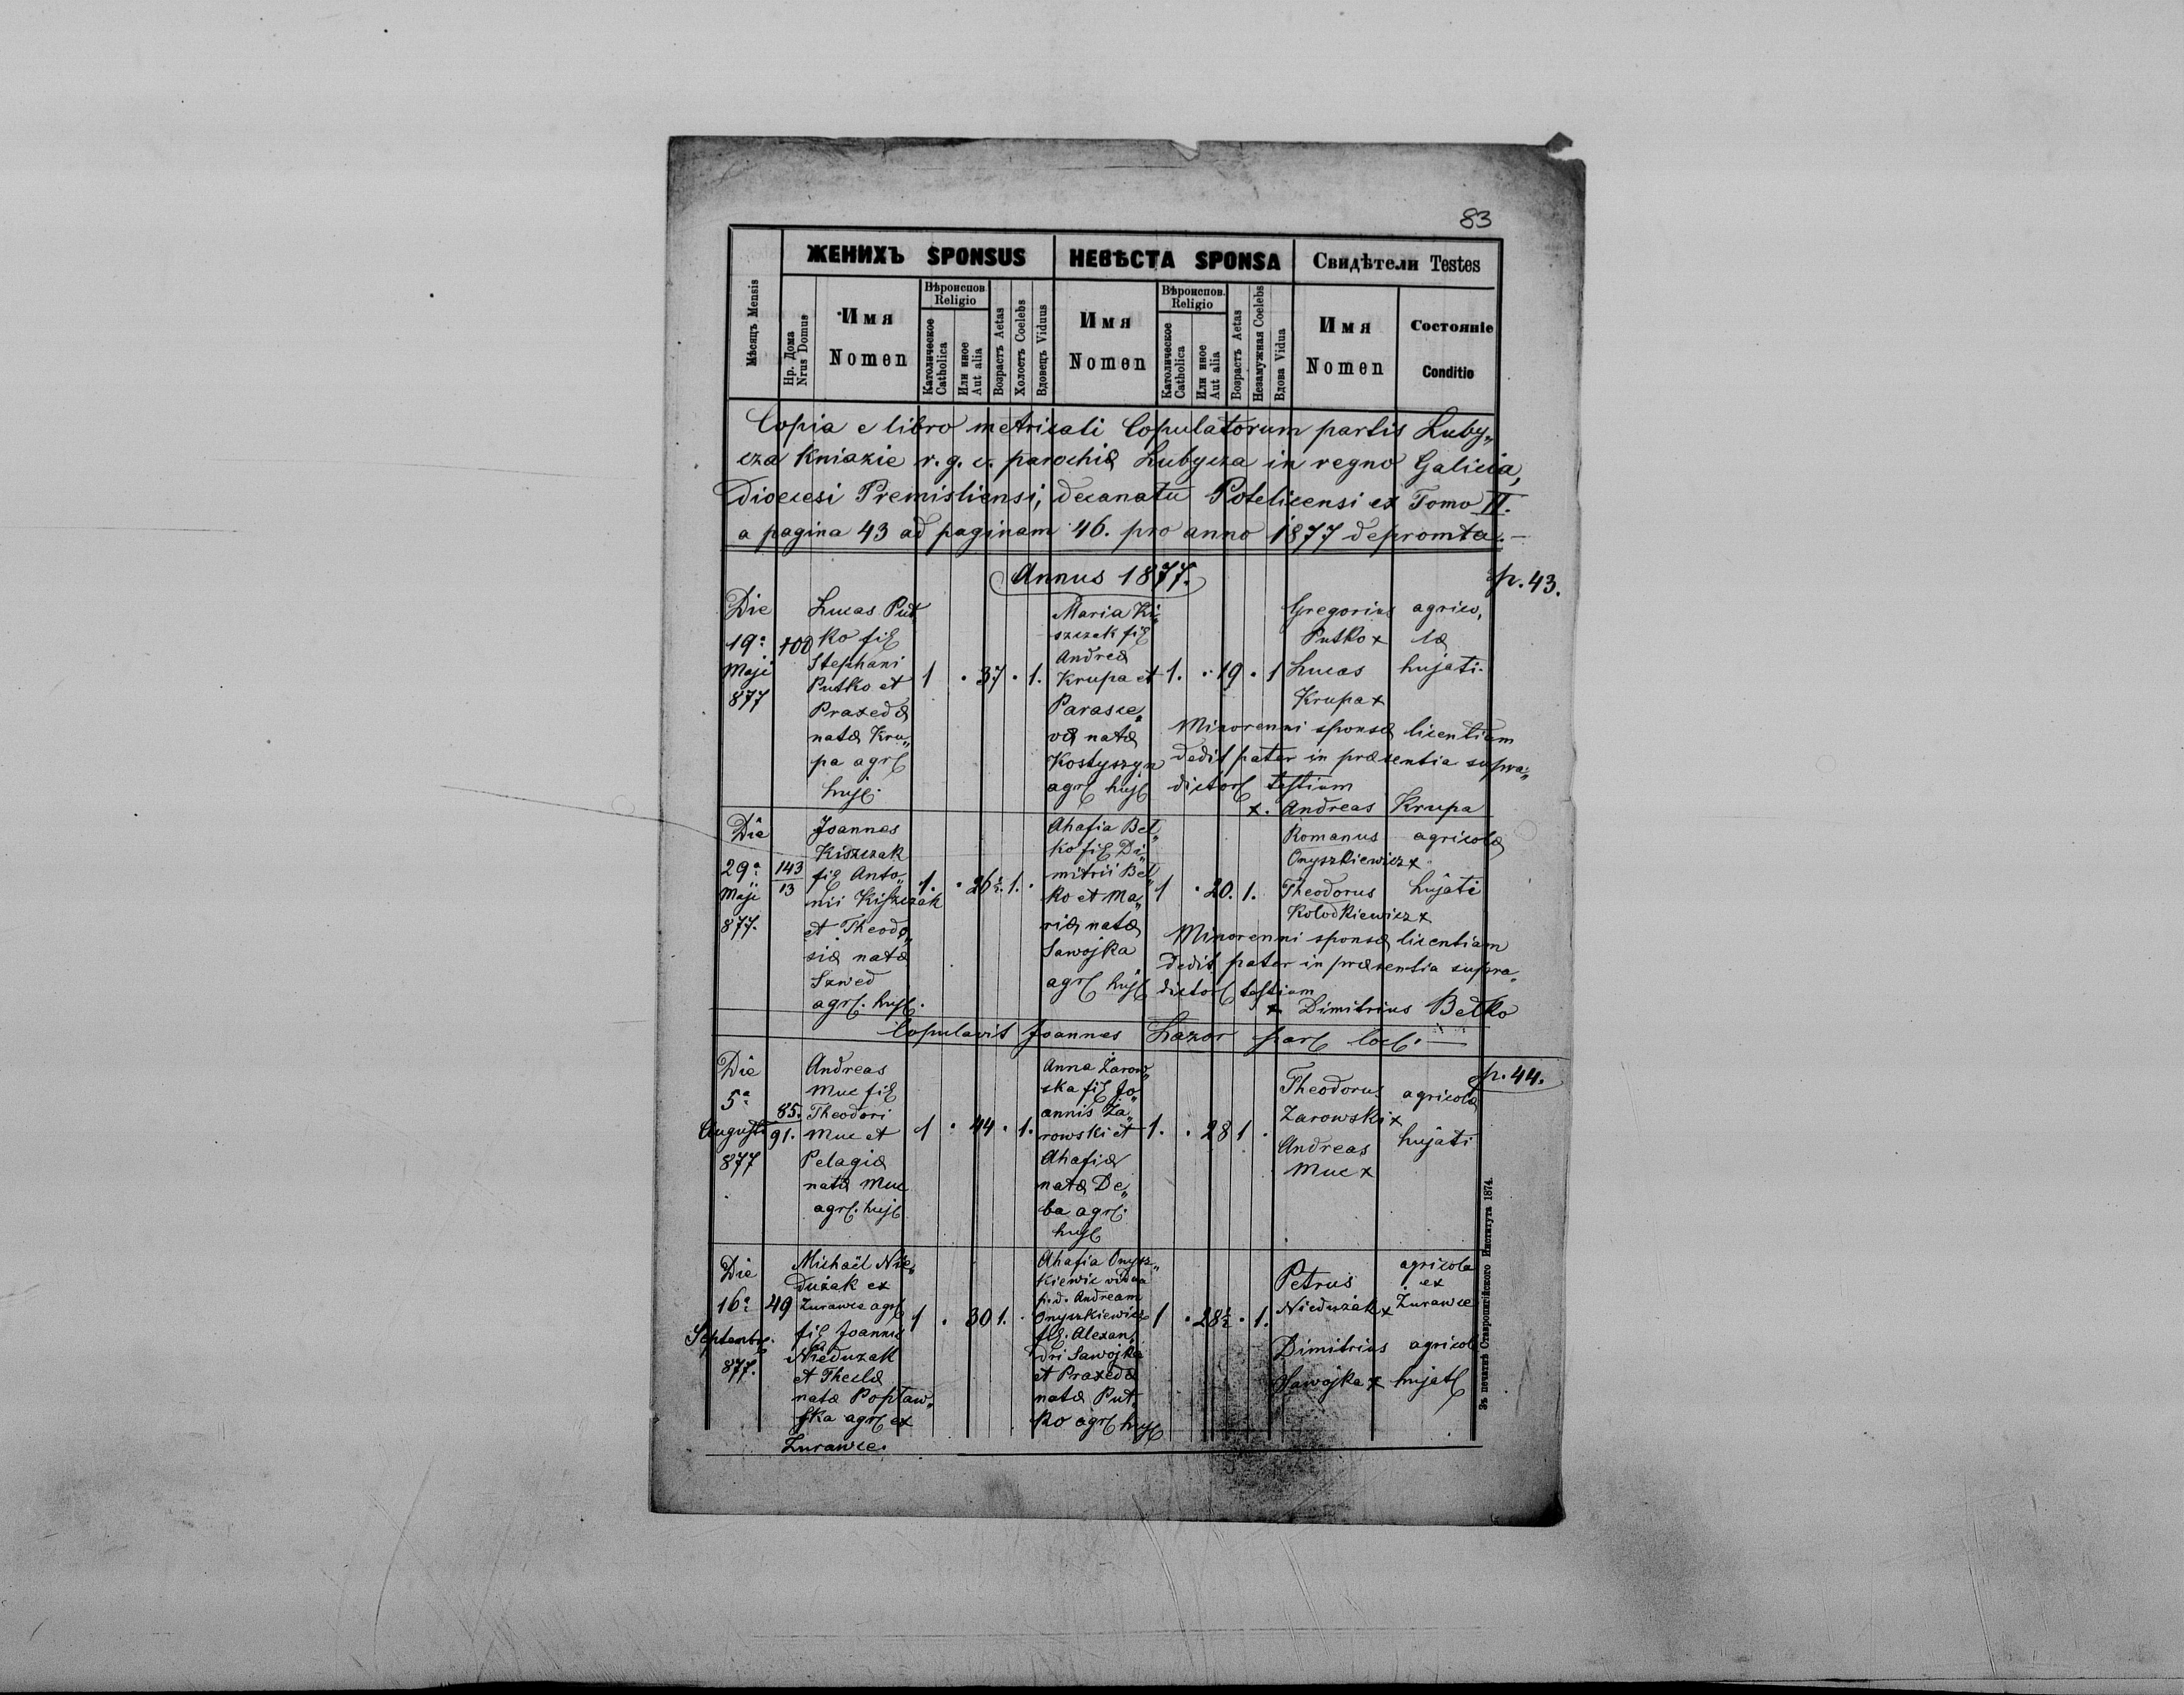 83
ЖЕНИХЪ SPONSUS
НЕВѢСТА SPONSA
Свидѣтели Testes
Мѣсяцъ Mensis
Нр. Дома
Nrus Domus
Имя
Nomen
Вѣроиспов.
Religio
Католическое
Catholica
Или иное
Aut alia
Возрастъ Aetas
Холостъ Coelebs
Вдовецъ Viduus
Имя
Nomen
Вѣроиспов.
Religio
Католическое
Catholica
Или иное
Aut alia
Возрастъ Aetas
Незамужная Coelebs
Вдова Vidua
Имя
Nomen
Состоянiе
Conditio
Copia e libro metricali Copulatorum partis Luby„
cza Kniazie r. g. c. parochiæ Lubycza in regno Galicia,
Dioecesi Premisliensi, decanatu Potelicensi ex Tomo II.
a pagina 43 ad paginam 46. pro anno 1877 depromta.—
Annus 1877.
p. 43.
Die
19ª
Maji
877
100
Lucas Put„
ko fil
Stephani
Putko et
Praxedæ
natæ Kru„
pa agr
huj.
1 . 37 . 1.
Maria Ki„
szczak fil
Andreæ
Krupa et
Parasce„
væ natæ
Kostyszyn
agr huj
1. . 19 . 1
Gregorius
Putko x
Lucas
Krupa x
agrico„
læ
hujati.
Minorenni sponsæ licentiam
dedit pater in præsentia supra„
dictor testium
x. Andreas Krupa
Die
29ª
Maji
877.
143
13
Joannes
Kiszczak
fil Anto„
nii Kiszczak
et Theodo„
siæ natæ
Szwed
agr. huj.
1. . 26½. 1. .
Ahafia Beł„
ko fil Di„
mitrii Beł„
ko et Ma„
riæ natæ
Sawojka
agr huj
1 . 20. 1.
Romanus
Onyszkiewicz x
Theodorus
Kolodkiewicz x
agricolæ
hujati
Minorenni sponsæ licentiam
dedit pater in præsentia supra„
dictor testium
x. Dimitrius Bełko
Copulavit Joannes Lazor par loc. —
p. 44.
Die
5ª
Augusti
877
85.
91.
Andreas
Muc fil
Theodori
Muc et
Pelagiæ
natæ Muc
agr. huj
1 . 44 . 1.
Anna Żarow„
ska fil Jo„
annis Ża„
rowski et
Ahafiæ
natæ De„
ba agr.
huj
1. . 28 1 .
Theodorus
Zarowski x
Andreas
Muc x
agricolæ
hujati
Die
16ª
Septembr.
877.
49
Michaël Nie„
dużak ex
Żurawce agr
fil Joannis
Nieduzak
et Theclæ
natæ Popław„
ska agr ex
Zurawce.
1 . 30 1. .
Ahafia Onysz„
kiewic vidua
p. d. Andream
Onyszkiewicz
fil. Alexan„
dri Sawojka
et Praxedæ
natæ Put„
ko agr huj
1 . 28½ . 1.
Petrus
Nieduzak x
Dimitrius
Sawojka x
agricola
ex
Żurawce
agricola
hujat
Зъ печатнѣ Ставропигійского Института 1874.